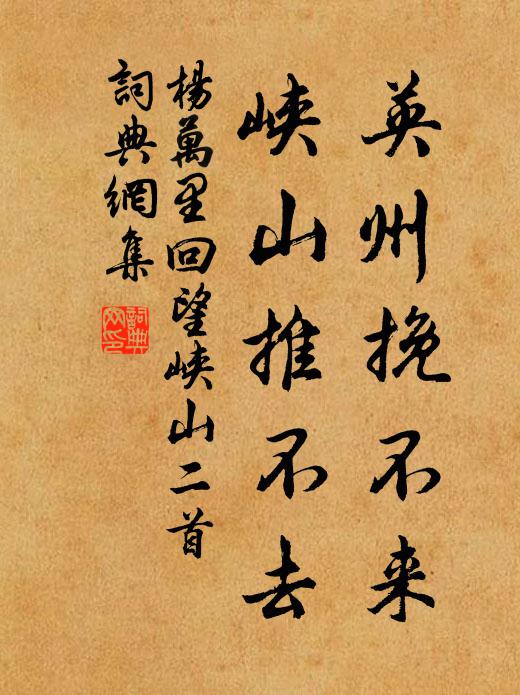 英州挽不来
峡山推不去
楊萬里回望峡山二首
詞典網集
詞典
网印